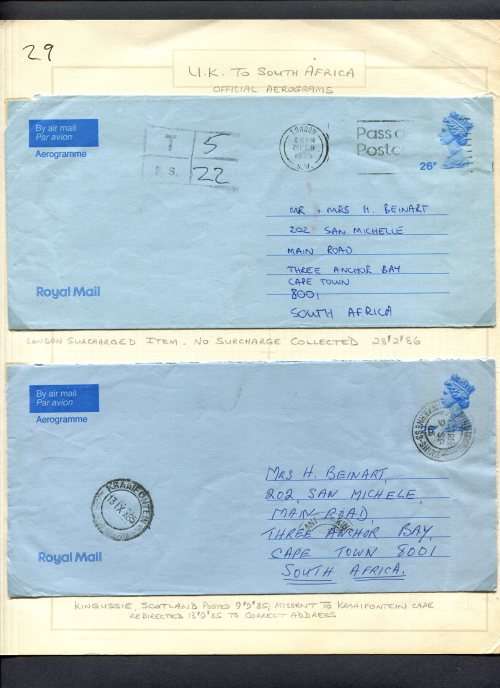 29
U.K. TO SOUTH AFRICA
OFFICIAL AEROGRAMS
By air mail
Par avion
Aerogramme
T 5
22
LONDON
Pass o
Posta
26P
MR & MRS H. BEINART
202 SAN MICHELLE
MAIN ROAD
THREE ANCHOR BAY
CAPE TOWN
8001
SOUTH AFRICA
Royal Mail
LONDON SURCHARGED ITEM. NO SURCHARGE COLLECTED 28'2'86
By air mail
Par avion
Aerogramme
KRAAIFONTEIN
13 IX 85
MRS H. BEINART,
202, SAN MICHELE,
MAIN ROAD,
THREE ANCHOR BAY,
CAPE TOWN 8001
SOUTH AFRICA.
Royal Mail
KINGUSSIE, SCOTLAND POSTED 9'9'85; MISSENT TO KRAAIFONTEIN CAPE
REDIRECTED 13'9'85 TO CORRECT ADDRESS